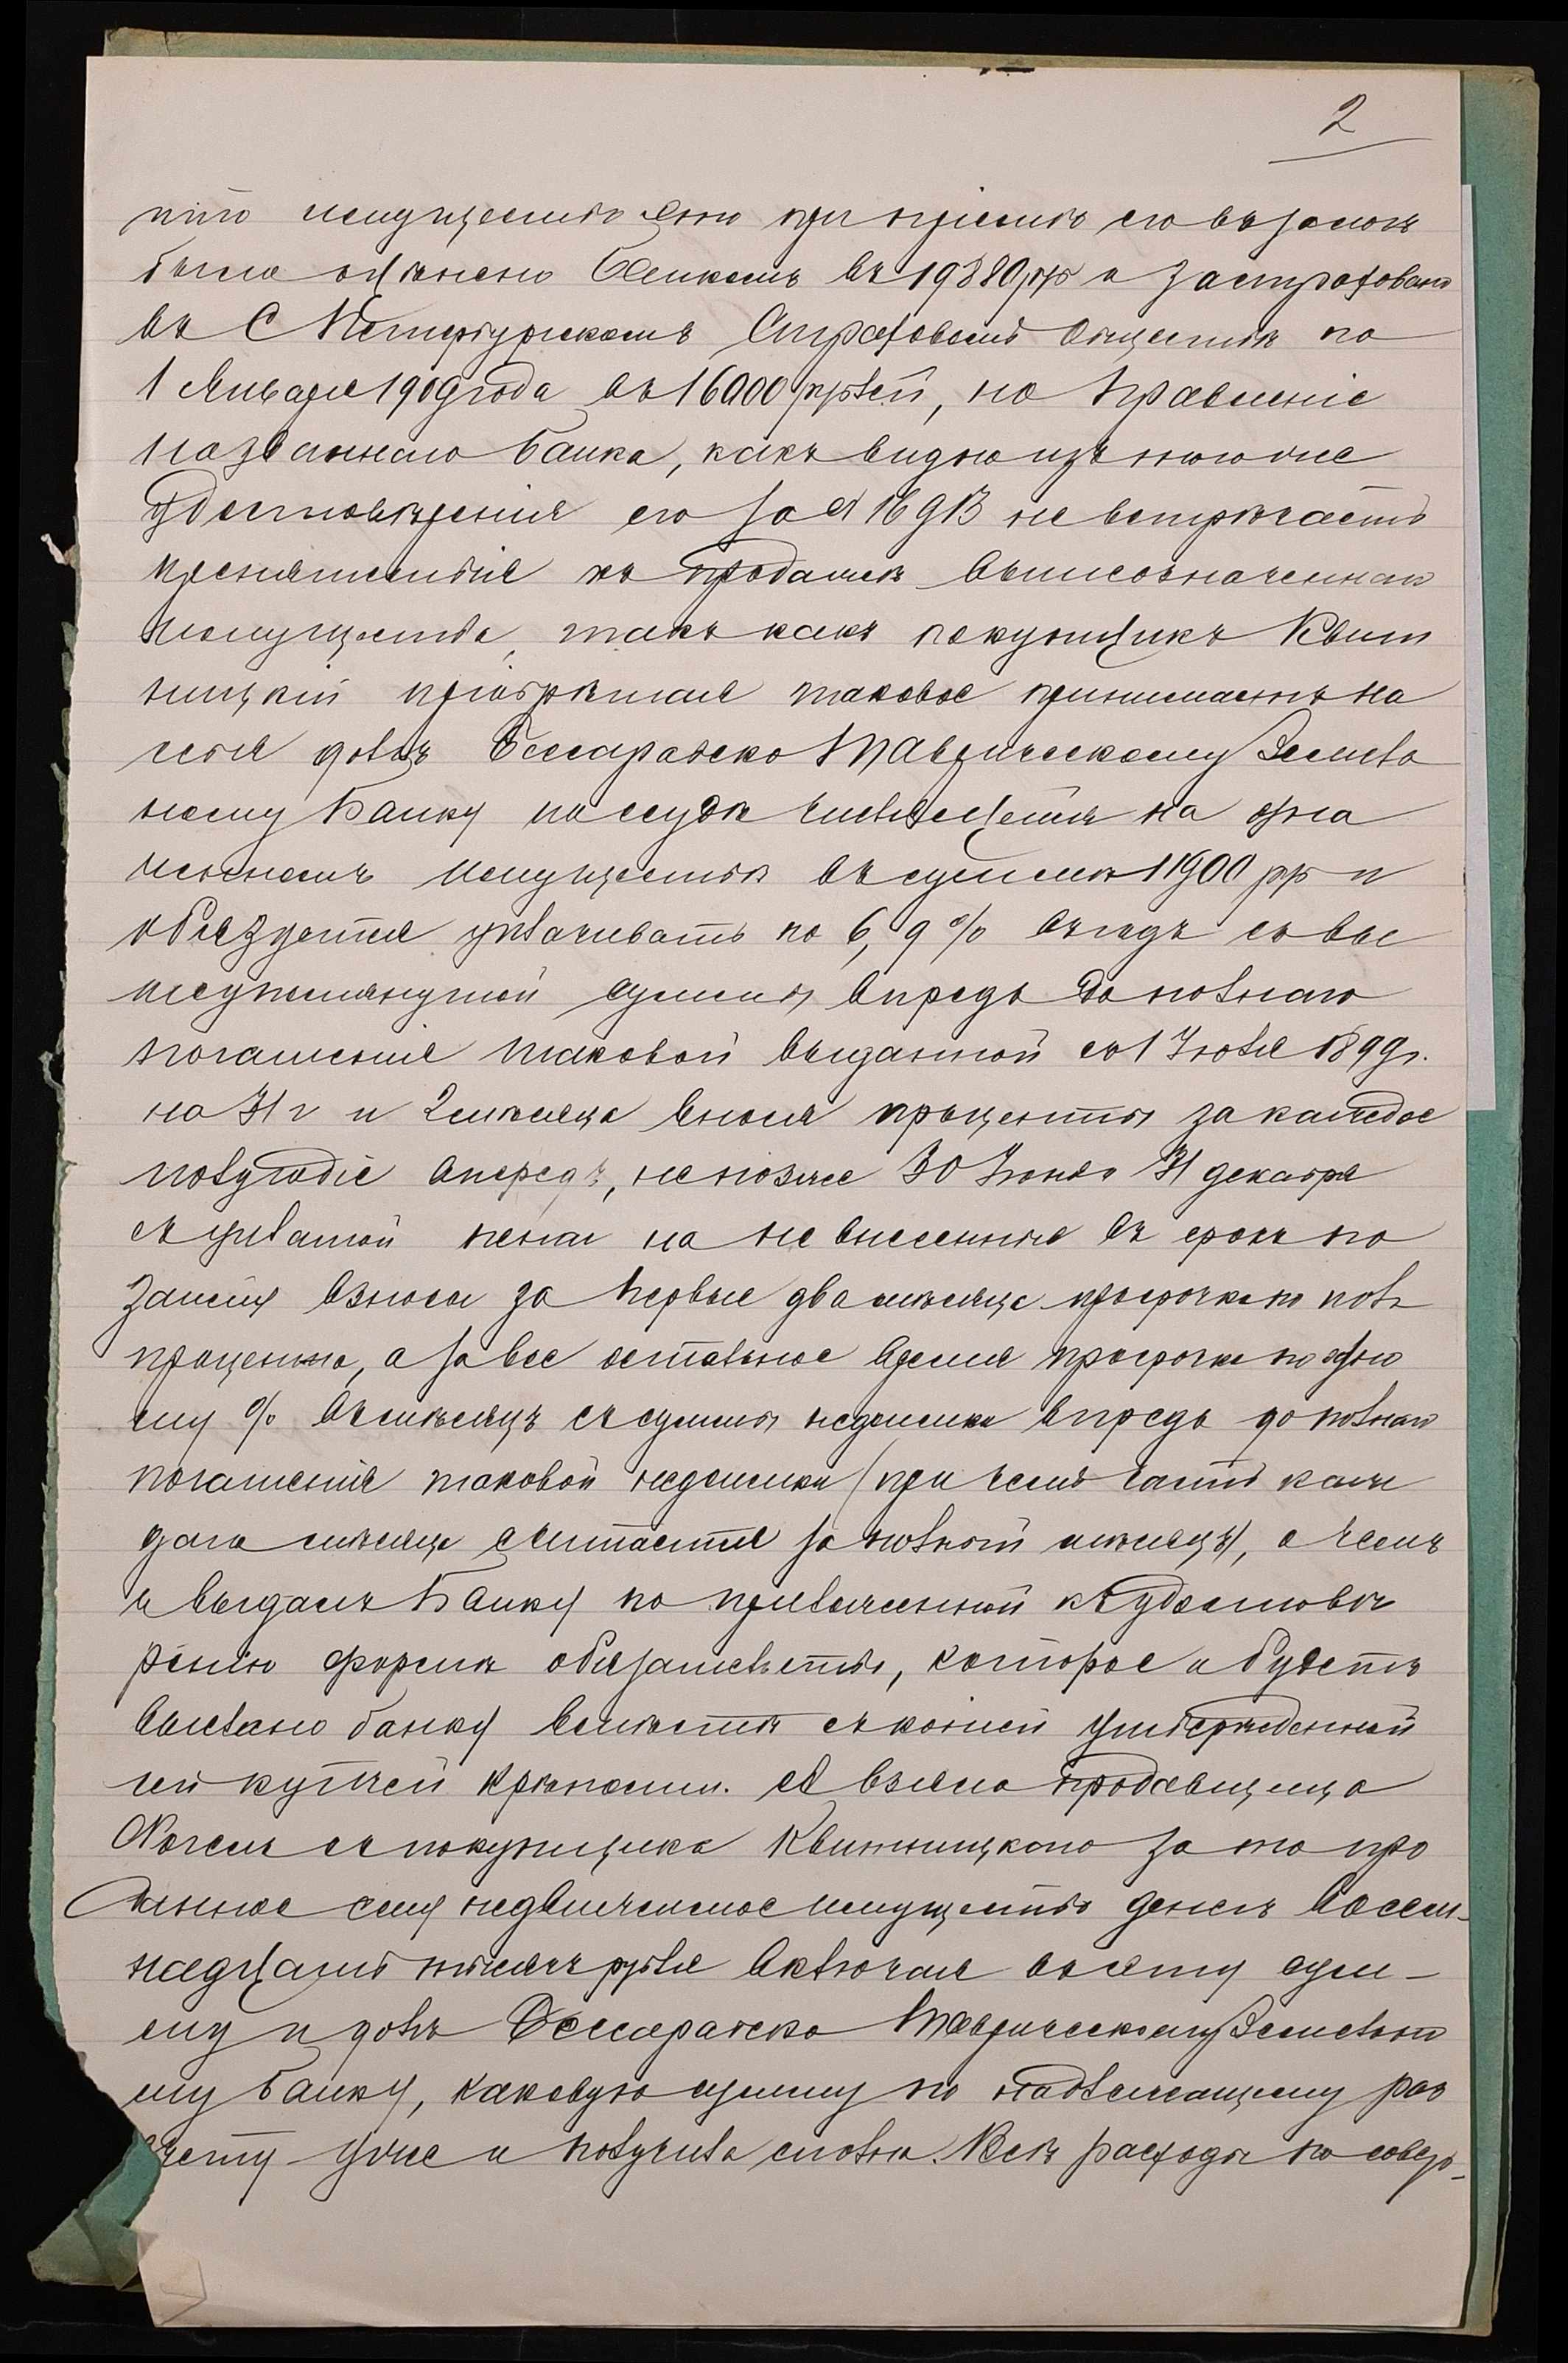 2
имущество это при приемѣ его въ залогъ
было оцѣнено Банкомъ въ 19380 рб и застраховано
въ С Петербургскомъ Страховомъ Обществѣ по
1 Января 1909 года въ 16000 рублей, но Правленіе
названнаго Банка, какъ видно изъ того же
удостовѣренія его за № 16913 не встрѣчаетъ
препятствія къ продажѣ вышеозначеннаго
имущества, такъ какъ покупщикъ Квит
ницкій пріобрѣтая таковое принимаетъ на
себя долгъ Бессарабско Таврическому Земель
ному Банку по ссудѣ числящейся на озна
ченномъ имуществѣ въ суммѣ 11900 рб и
обязуется уплачивать по 6,9% въ годъ съ вы
шеупомянутой суммы впредь до полнаго
погашенія таковой выданной съ 1 Іюля 1899 г.
на 31 г и 2 мѣсяца внося проценты за каждое
полугодіе впередъ, не позже 30 Іюня и 31 декабря
съ уплатой пени на не внесенные въ срокъ по
займу взносы за первые два мѣсяца просрочки по полъ
процента, а за все остальное время просрочки по одно
му % въ мѣсяцъ съ суммы недоимки впредь до полнаго
погашенія таковой недоимки (при чемъ часть каж
даго мѣсяца считается за полный мѣсяцъ), о чемъ
и выдалъ Банку по приложенной къ удостовѣ
ренію формѣ обязательство, которое и будетъ
выслано банку вмѣстѣ съ копіей утвержденной
сей купчей крѣпости. А взяла продавщица
Коганъ съ покупщика Квитницкаго за то про
данное ему недвижимое имущество денегъ восем-
надцать тысячъ рублей включая въ эту сум-
му и долгъ Бессарабско Таврическому Земельно
му Банку, каковую сумму по надлежащему раз
счету уже и получила сполна. Всѣ расходы по совер-